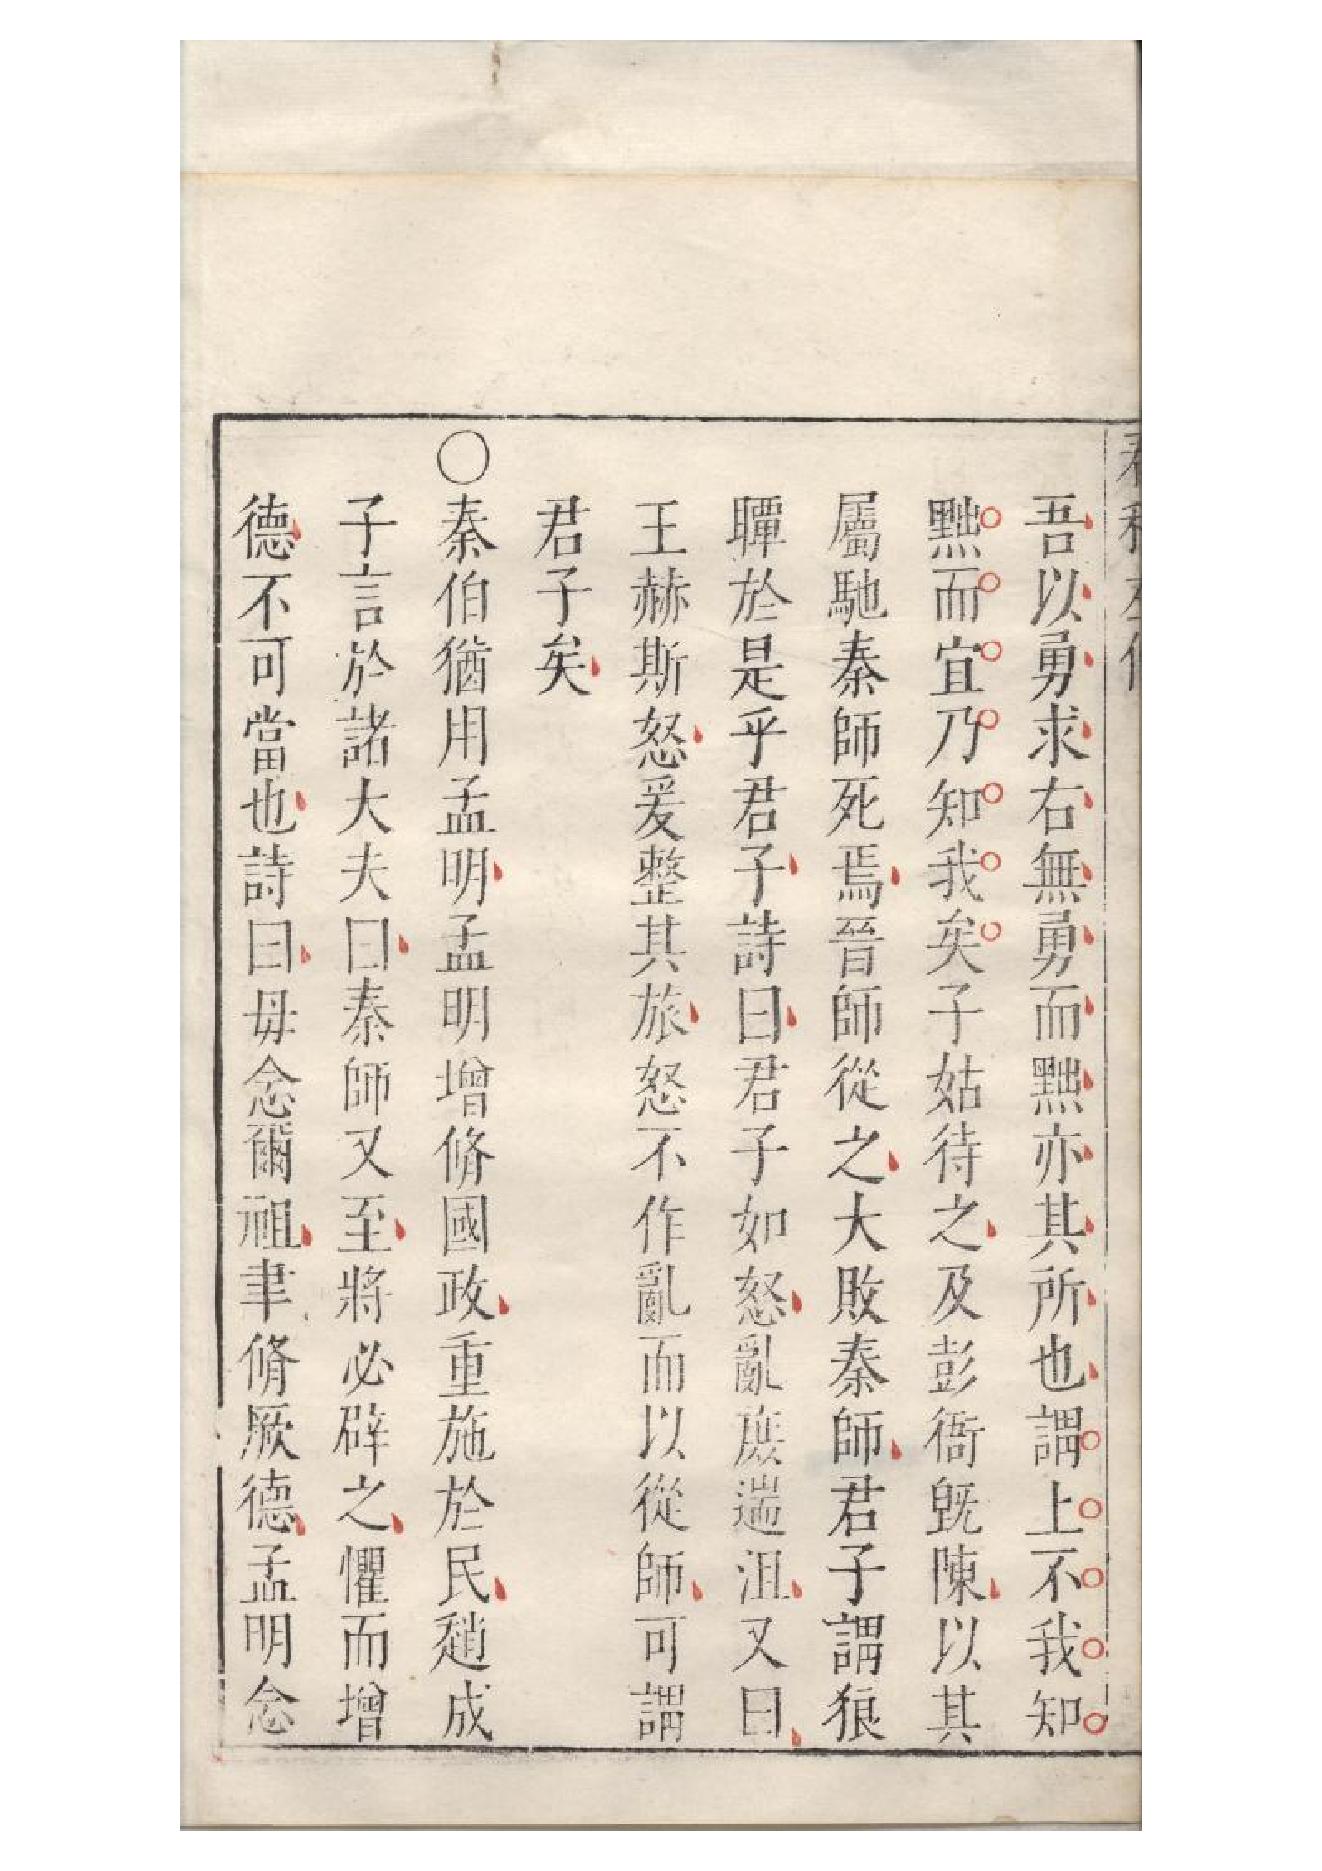 吾以勇求右無勇而黜亦其所也謂上不我知
黜而宜乃知我矣子姑待之及彭衙旣陳以其
屬馳秦師死焉晉師從之大敗秦師君子謂狼
瞫於是乎君子詩曰君子如怒亂庶遄沮又曰
王赫斯怒爰整其旅怒不作亂而以從師可謂
君子矣
○秦伯猶用孟明孟明增脩國政重施於民趙成
子言於諸大夫曰秦師又至將必辟之懼而增
德不可當也詩曰毋念爾祖聿脩厥德孟明念